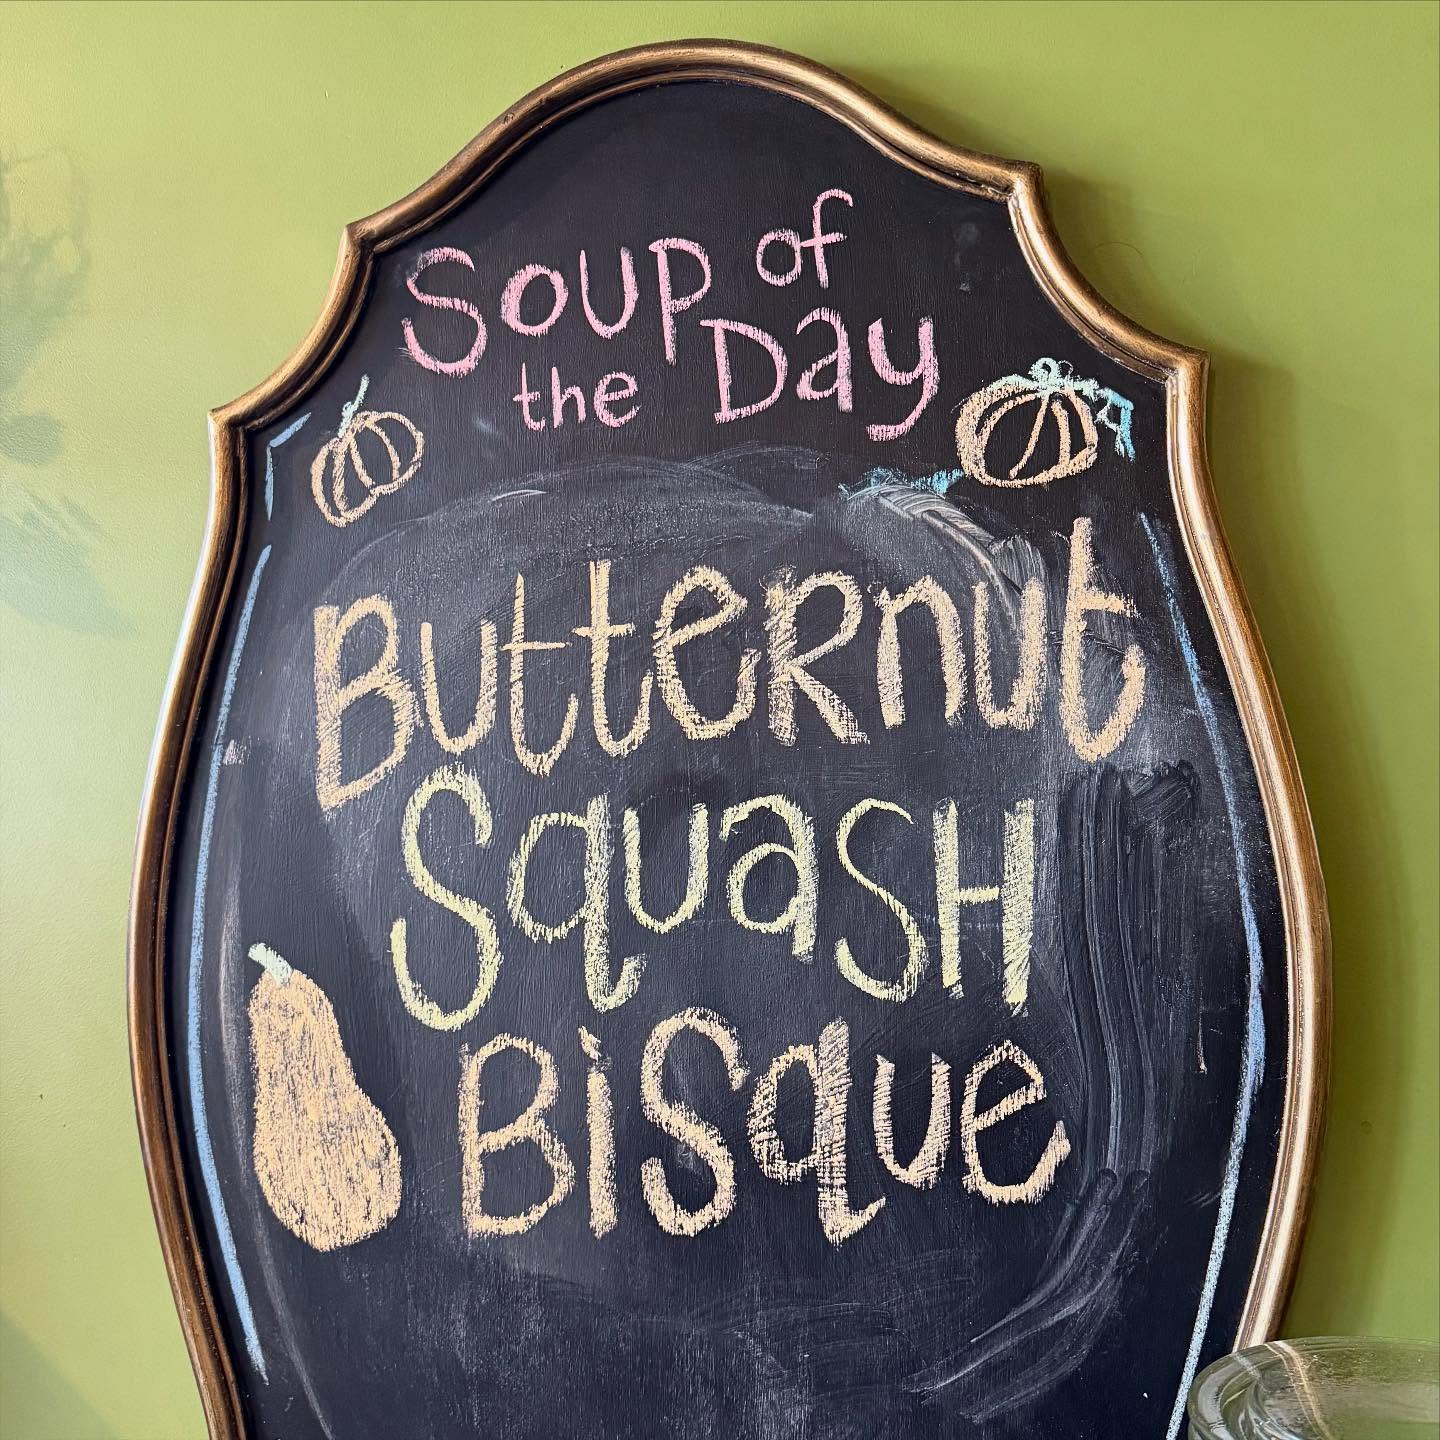 Soup of
the Day
ButteRnut
SquasH
BiSque